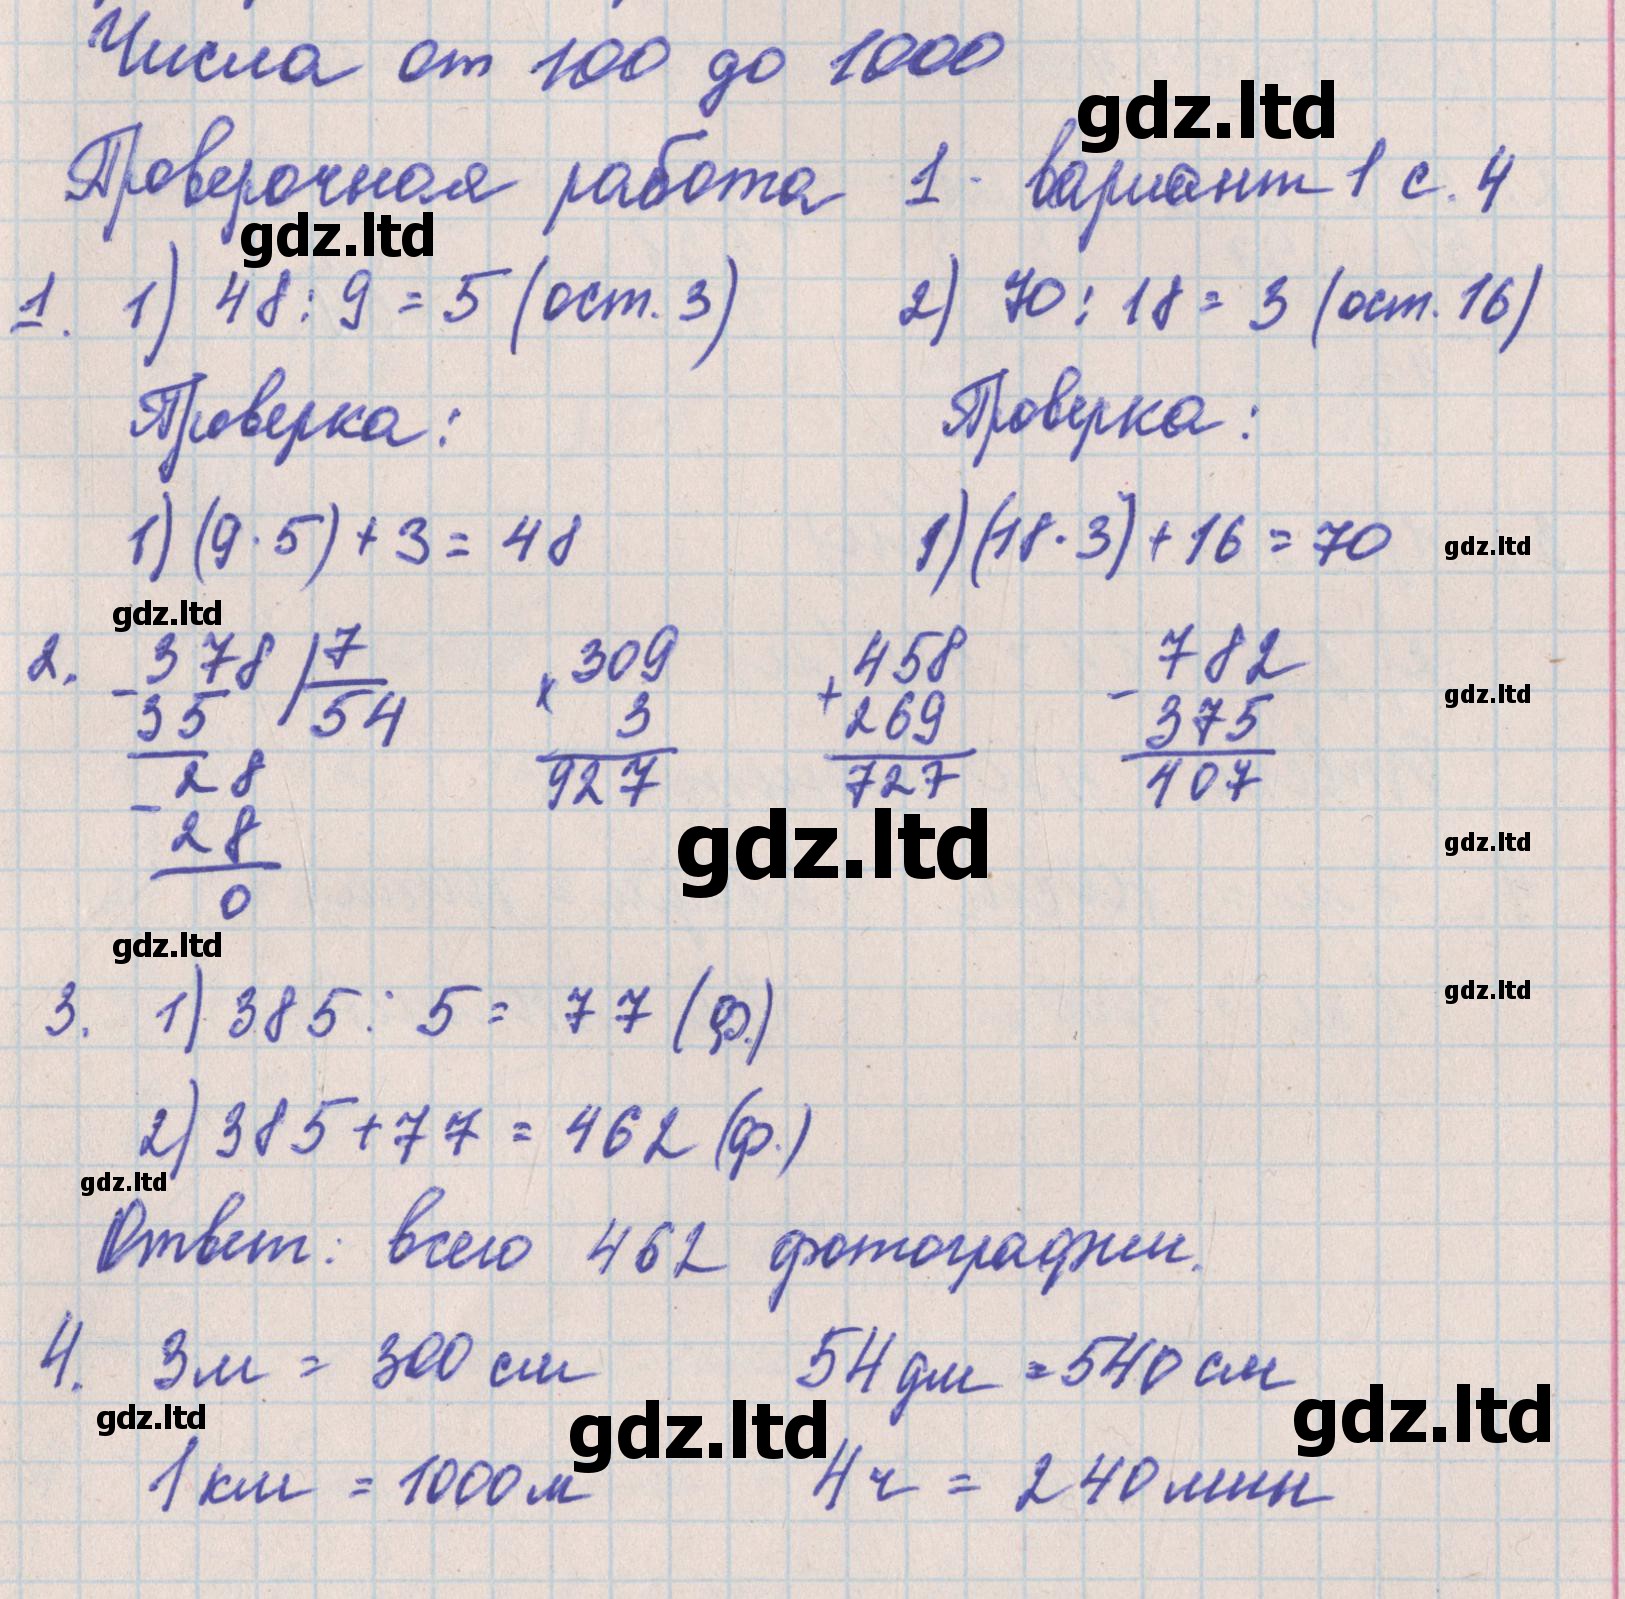 Числа от 100 до 1000
gdz.ltd
Проверочная работа 1 - вариант 1 с. 4
gdz.ltd
1. 1) 48 : 9 = 5 (ост. 3) 2) 70 : 18 = 3 (ост. 16)
Проверка: Проверка:
1) (9 · 5) + 3 = 48 1) (18 · 3) + 16 = 70 gdz.ltd
gdz.ltd
2. 378 | 7 309 458 782
- 35 54 x 3 + 269 - 375 gdz.ltd
28 927 727 407
- 28 gdz.ltd gdz.ltd
0
gdz.ltd
gdz.ltd
3. 1) 385 : 5 = 77 (ф.)
2) 385 + 77 = 462 (ф.)
gdz.ltd
Ответ: всего 462 фотографии.
4. 3 м = 300 см 54 дм = 540 см
gdz.ltd gdz.ltd gdz.ltd
1 км = 1000 м 4 ч = 240 мин